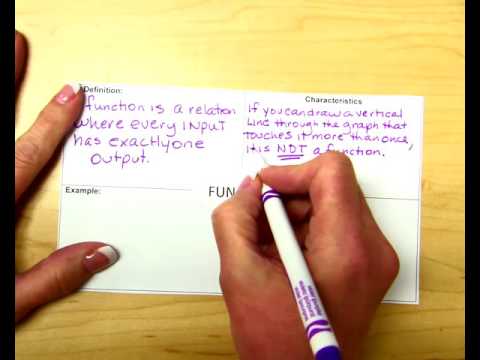 Definition:
function is a relation
where every INPUT
has exactly one
output.
Characteristics
If you can draw a vertical
line through the graph that
touches it more than once,
it is NOT a function.
Example:
FUN